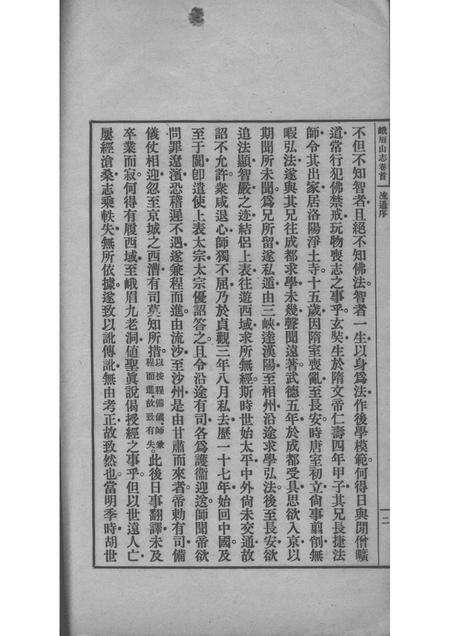 峨眉山志卷首 流通序 二
不但不知智者且絕不知佛法智者一生以身為法作後學模範何得日與閒僧曠
道常行犯佛禁戒玩物喪志之事乎玄奘生於隋文帝仁壽四年甲子其兄長捷法
師令其出家居洛陽淨土寺十五歲因隋室喪亂至長安時唐室初立尙事翦削無
暇弘法遂與其兄往成都求學未幾聲聞遠著武德五年於成都受具思欲入京以
期聞所未聞為兄所留遂私遁由三峽達漢陽至相州沿途求學弘法後至長安欲
追法顯智嚴之迹結侶上表往遊西域求所無經斯時世始太平中外尙未交通故
詔不允許衆咸退心師獨不屈乃於貞觀三年八月私去歷一十七年始回中國及
至于闐卽遣使上表太宗太宗優詔答之且令沿途有司各為護衞迎送師聞帝欲
問罪遼濱恐稽遲不遇遂兼程而進由流沙至沙州是由甘肅而來者帝勅有司備
儀仗相迎忽至京城之西漕有司莫知所措以按程備儀師兼程而進故致有失此後日事翻譯未及
卒業而寂何得有屐西域至峨眉九老洞値聖眞說偈授經之事乎但以世遠人亡
屢經滄桑志乘軼失無所依據遂致以訛傳訛無由考正故致然也當明季時胡世